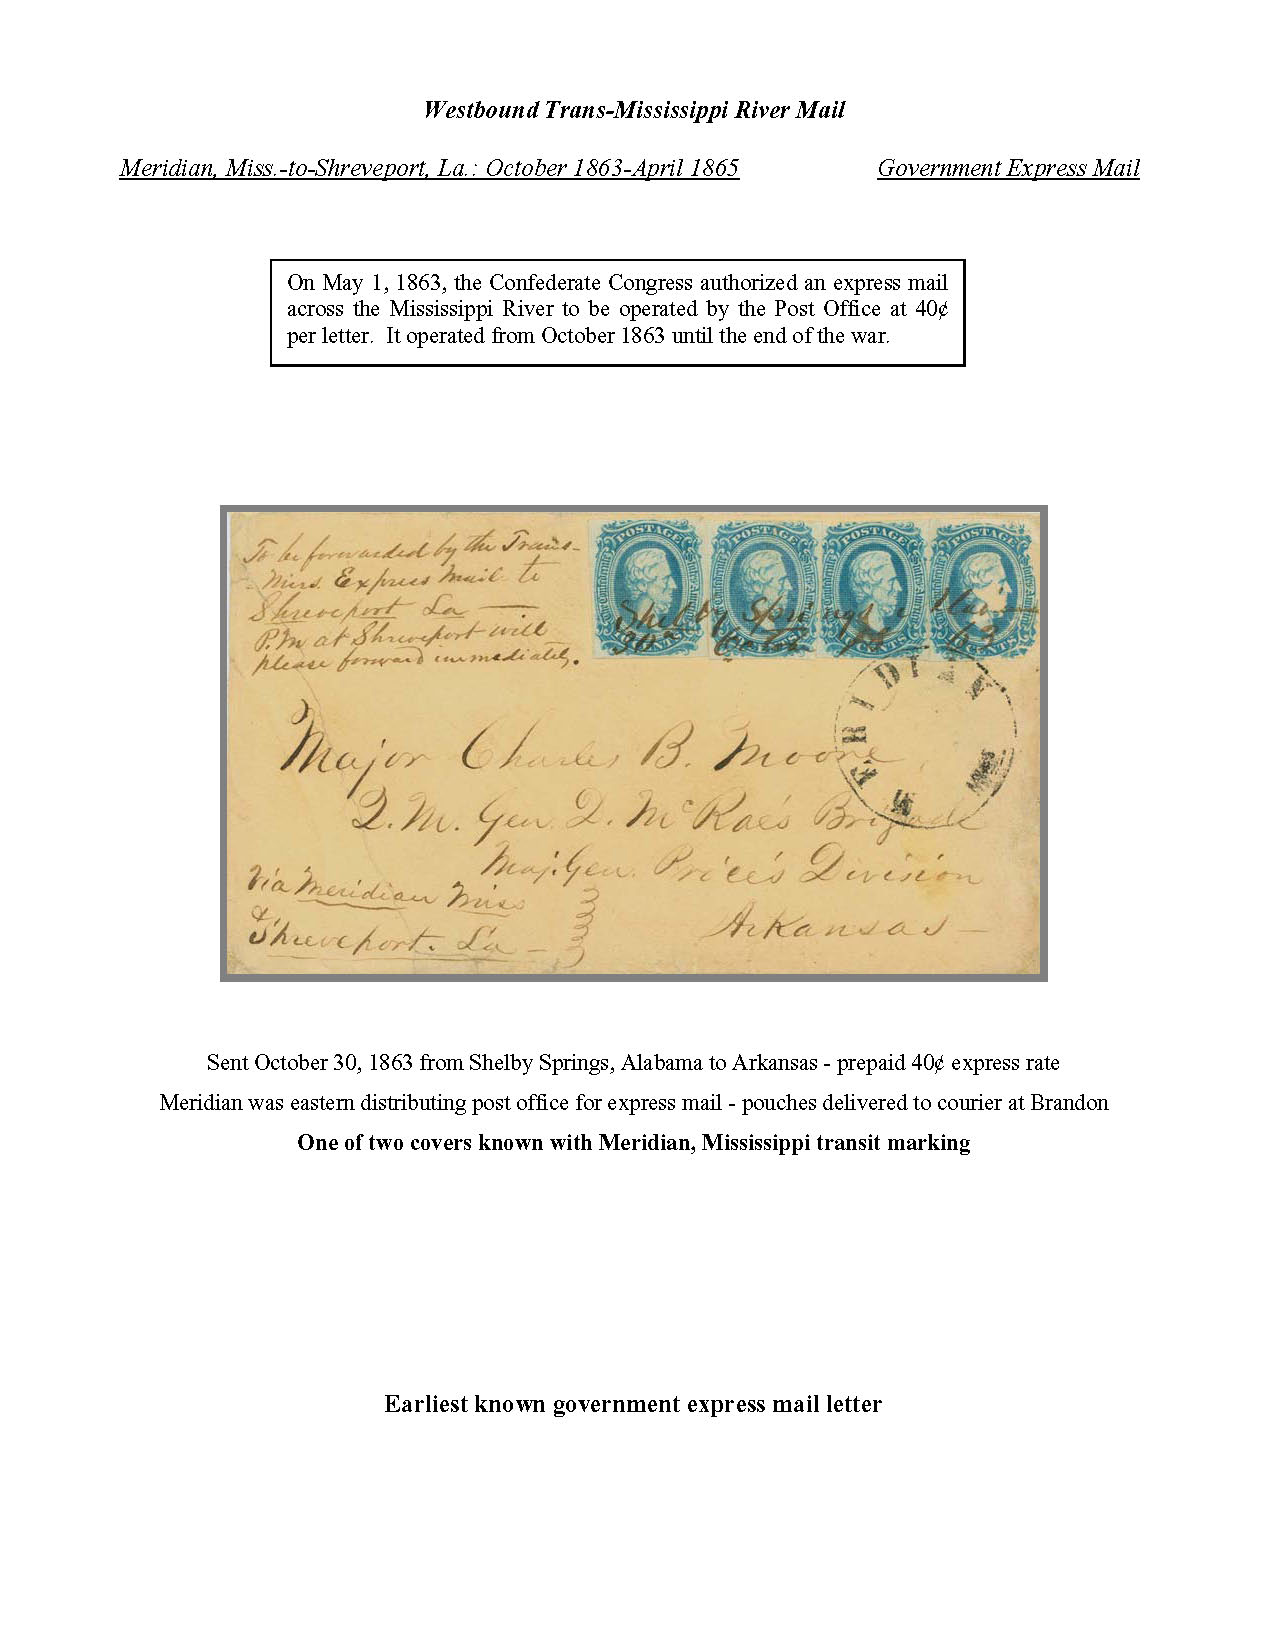 Westbound Trans-Mississippi River Mail
Meridian, Miss.-to-Shreveport, La.: October 1863-April 1865 Government Express Mail
On May 1, 1863, the Confederate Congress authorized an express mail
across the Mississippi River to be operated by the Post Office at 40¢
per letter. It operated from October 1863 until the end of the war.
To be forwarded by the Trans-
Miss. Express Mail to
Shreveport La —
P.M at Shreveport will
please forward immediately.
POSTAGE POSTAGE POSTAGE POSTAGE
Shelby Springs
30 63
CENTS CENTS
MERIDIAN
Major Charles B. Moore,
Q.M. Gen. D. McRae's Brigade
Maj. Gen. Price's Division
Arkansas —
Via Meridian Miss
& Shreveport. La —
Sent October 30, 1863 from Shelby Springs, Alabama to Arkansas - prepaid 40¢ express rate
Meridian was eastern distributing post office for express mail - pouches delivered to courier at Brandon
One of two covers known with Meridian, Mississippi transit marking
Earliest known government express mail letter